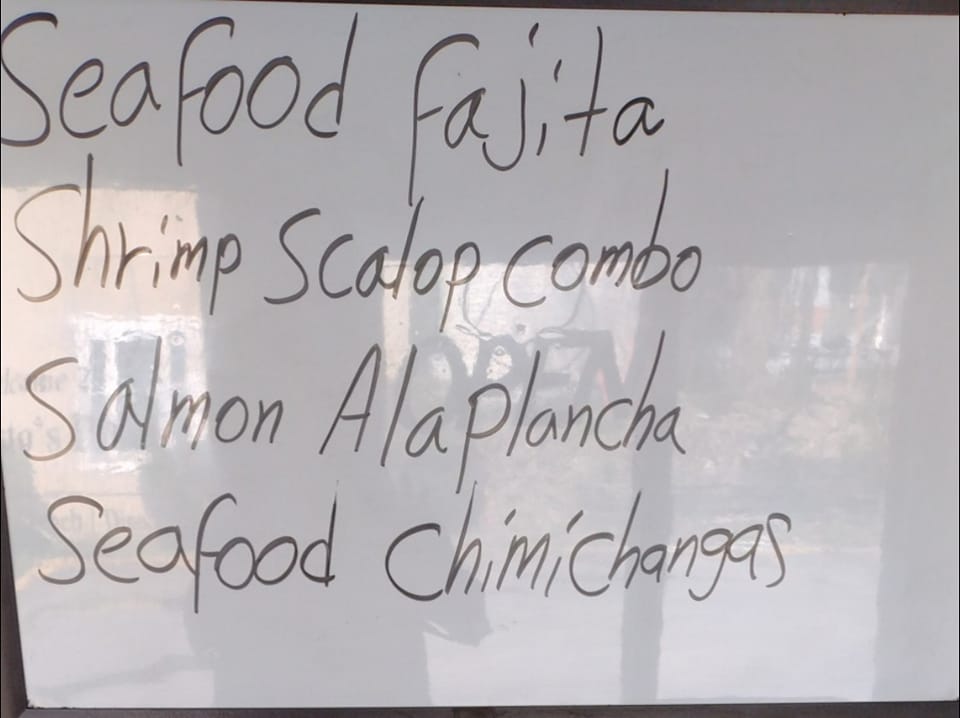 Seafood Fajita
Shrimp Scalop Combo
Salmon Alaplancha
Seafood Chimichangas
OPEN